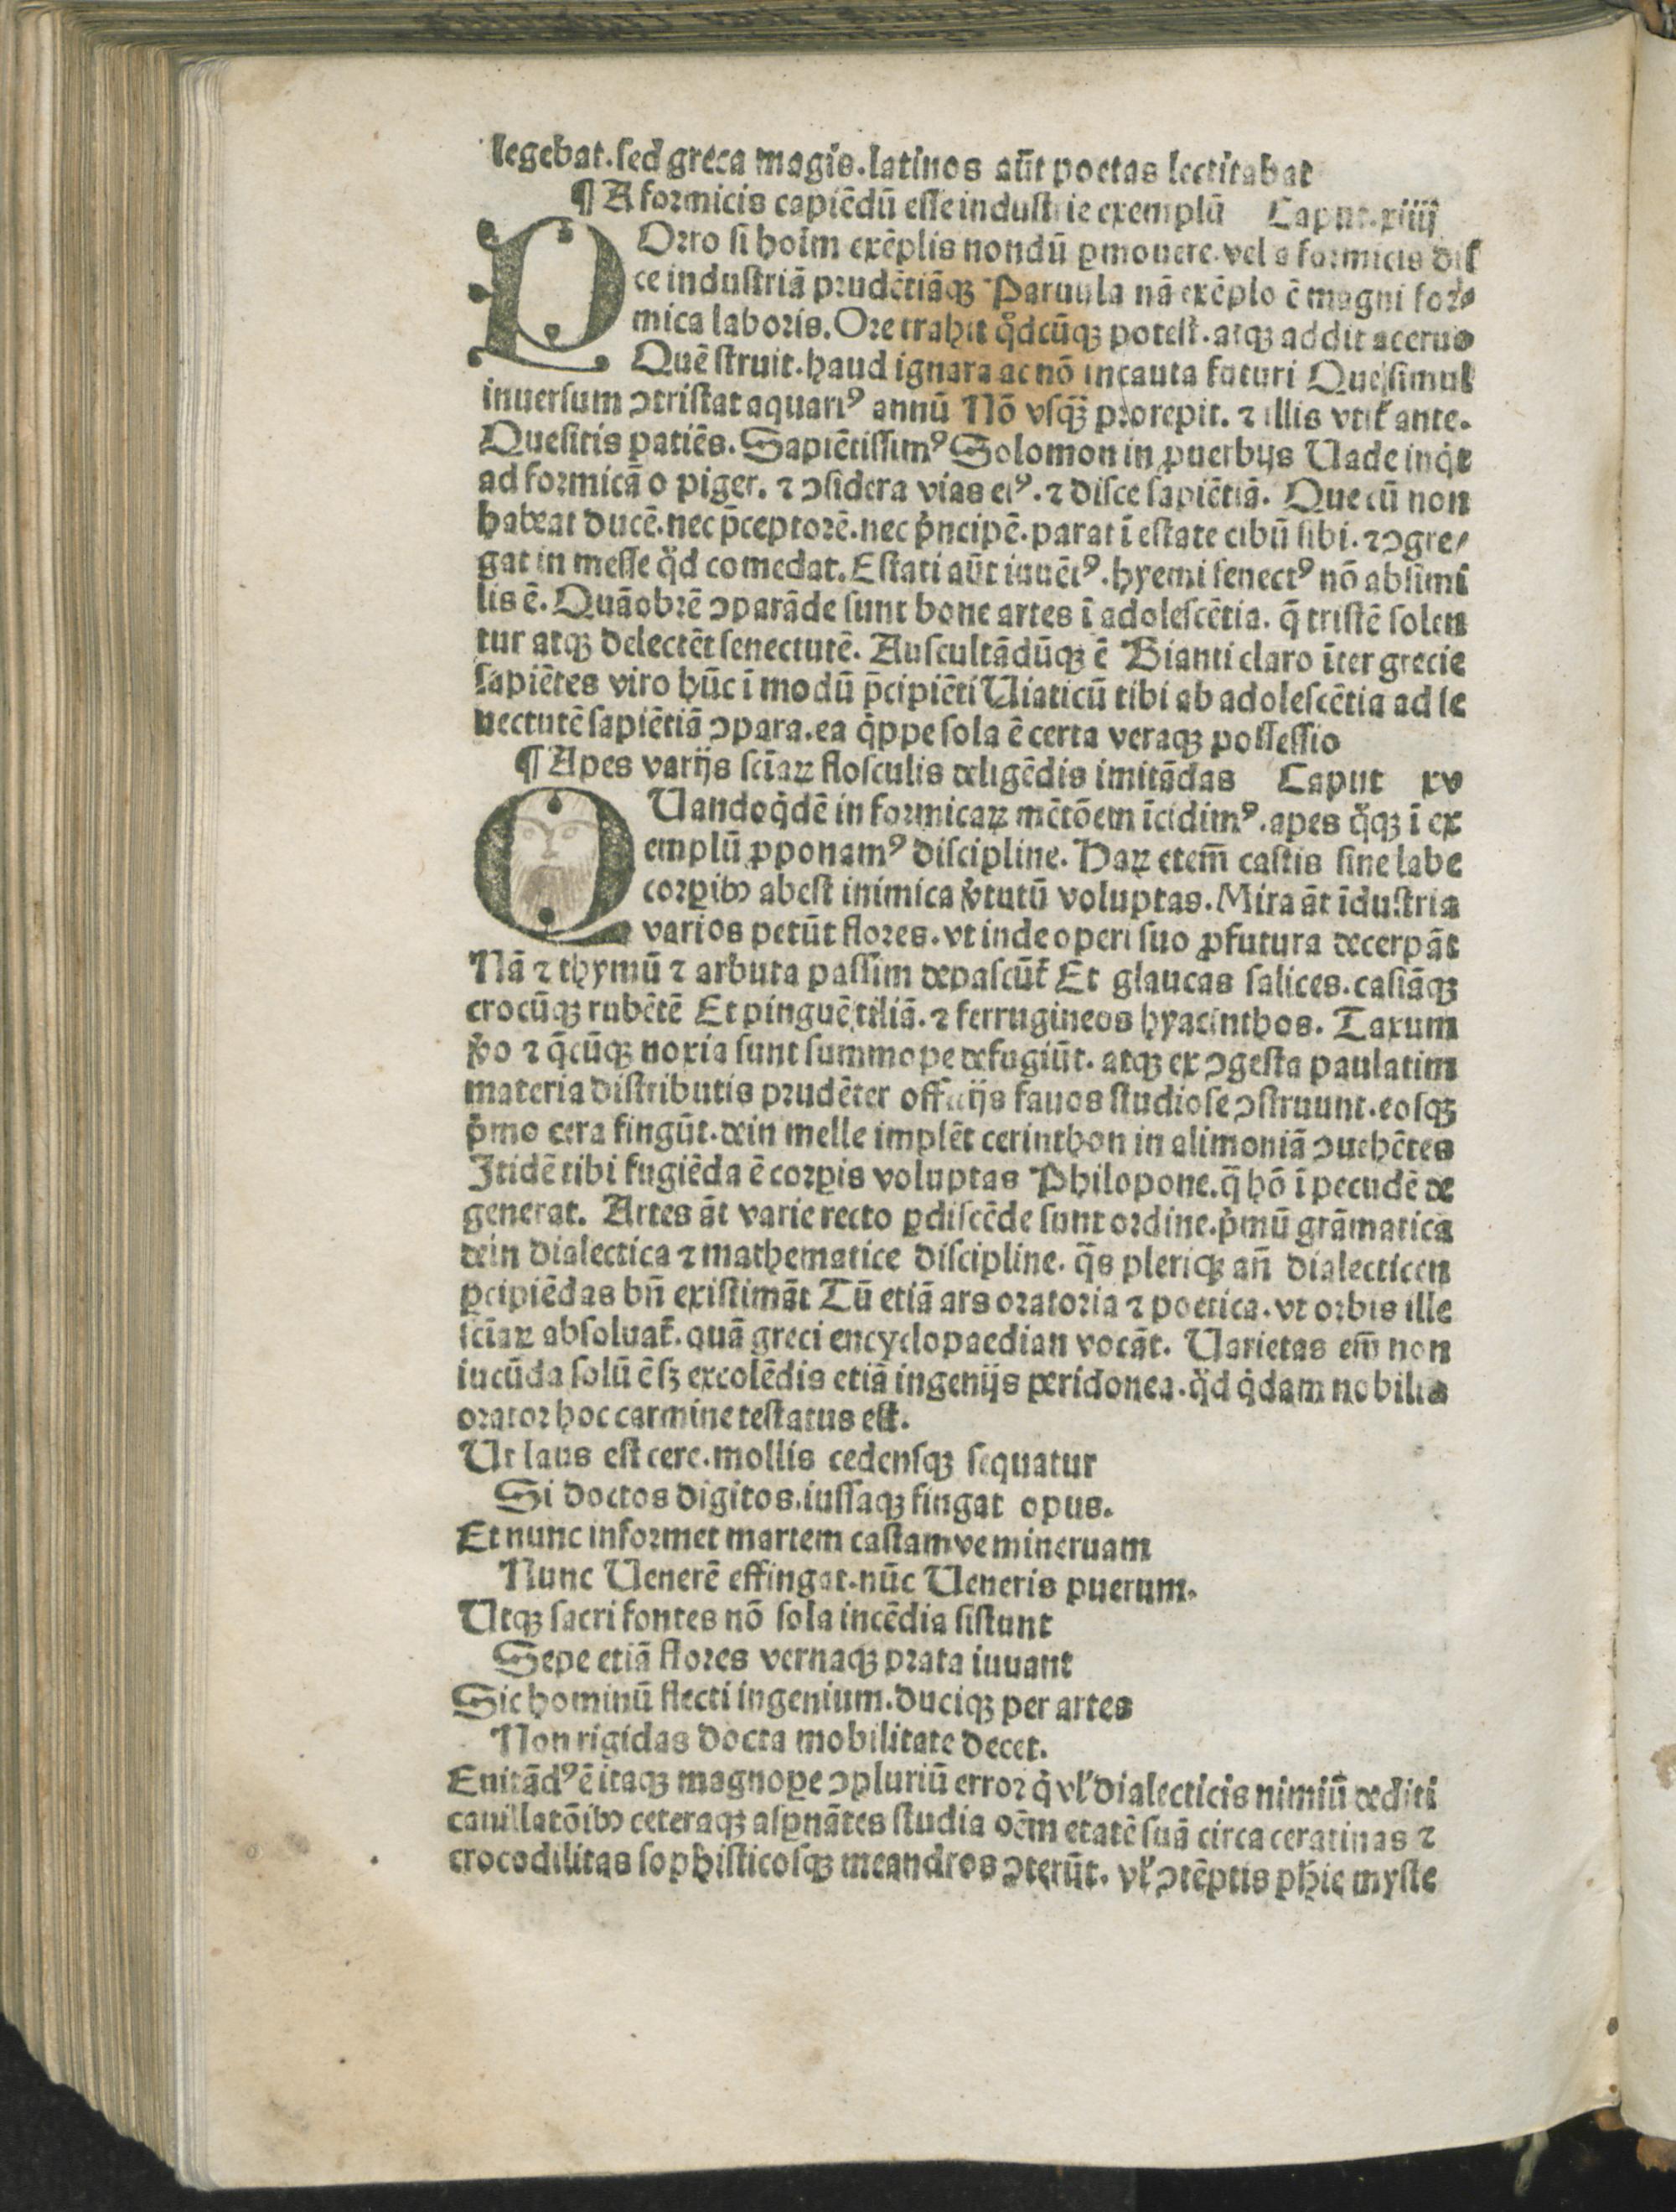 legebat.ſed greca magis.latinos aūt poetas lectitabat
¶ A formicis capiēdū eſſe induſtrie exemplū Caput.xiiij
POrro ſi hoīm exēplis nondū ꝓmouere.vel a formicis diſ
ce induſtriā prudētiāqꝫ Paruula nā exēplo ē magni for⸗
mica laboris.Ore trahit qͦdcūqꝫ poteſt.atqꝫ addit aceruo
Quē ſtruit.haud ignara ac nō incauta futuri Que ſimul
inuerſum ↄtriſtat aquariꝰ annū Nō vſqꝫ prorepit.⁊ illis vtit᷑ ante.
Queſitis patiēs.Sapiētiſſimꝰ Solomon in ꝓuerbijs Uade inqͥt
ad formicā o piger.⁊ ↄſidera vias eiꝰ.⁊ diſce ſapiētiā. Que cū non
habeat ducē.nec p̄ceptorē.nec pͥncipē.parat ī eſtate cibū ſibi.⁊ ↄgre/
gat in meſſe qͦd comedat.Eſtati aūt iuuētꝰ.hyemi ſenectꝰ nō abſimi
lis ē.Quāobrē ↄparāde ſunt bone artes ī adoleſcētia.q̄ triſtē ſolen
tur atqꝫ delectēt ſenectutē. Auſcultādūqꝫ ē Bianti claro īter grecie
ſapiētes viro hūc ī modū p̄cipiēti Uiaticū tibi ab adoleſcētia ad ſe
nectutē ſapiētiā ↄpara.ea qͥppe ſola ē certa veraqꝫ poſſeſſio
¶ Apes varijs ſcīaꝝ floſculis deligēdis imitādas Caput xv
QUandoqͥdē in formicaꝝ mētōem īcidimꝰ.apes qͦqꝫ ī ex
emplū ꝓponamꝰ diſcipline. Haꝝ etem̄ caſtis ſine labe
corꝑibꝰ abeſt inimica v̓tutū voluptas.Mira āt īduſtria
varios petūt flores.vt inde operi ſuo ꝓfutura decerpāt
Nā ⁊ thymū ⁊ arbuta paſſim depaſcūt᷑ Et glaucas ſalices.caſiāqꝫ
crocūqꝫ rubētē Et pinguē tiliā.⁊ ferrugineos hyacinthos. Taxum
v̓o ⁊ q̄cūqꝫ noxia ſunt ſummope defugiūt.atqꝫ ex ↄgeſta paulatim
materia diſtributis prudēter officijs fauos ſtudioſe ↄſtruunt.eoſqꝫ
pͥmo cera fingūt.dein melle implēt cerinthon in alimoniā ↄuehētes
Itidē tibi fugiēda ē corꝑis voluptas Philopone.q̄ hōīpecudē de
generat. Artes āt varie recto ꝑdiſcēde ſunt ordine.pͥmū grāmatica
dein dialectica ⁊ mathematice diſcipline.q̄s pleriqꝫ an̄ dialecticen
ꝑcipiēdas bn̄ exiſtimāt Tū etiā ars oratoria ⁊ poetica.vt orbis ille
ſcīaꝝ abſoluat᷑.quā greci encyclopaedian vocāt. Uarietas em̄ non
iucūda ſolū ē ſꝫ excolēdis etiā ingenijs peridonea.qͦd qͥdam nobilis
orator hoc carmine teſtatus eſt.
Ut laus eſt cere.mollis cedenſqꝫ ſequatur
Si doctos digitos.iuſſaqꝫ fingat opus.
Et nunc informet martem caſtamve mineruam
Nunc Uenerē effingat.nūc Ueneris puerum.
Utqꝫ ſacri fontes nō ſola incēdia ſiſtunt
Sepe etiā flores vernaqꝫ prata iuuant
Sic hominū flecti ingenium.duciqꝫ per artes
Non rigidas docta mobilitate decet.
Euitādꝰ ē itaqꝫ magnoꝑe ↄpluriū error qͥ vl̓ dialecticis nimiū dediti
cauillatōibꝰ ceteraqꝫ aſꝑnātes ſtudia oēm etatē ſuā circa ceratinas ⁊
crocodilitas ſophiſticoſqꝫ meandros ↄterūt. vl̓ ↄtēptis phie myſte